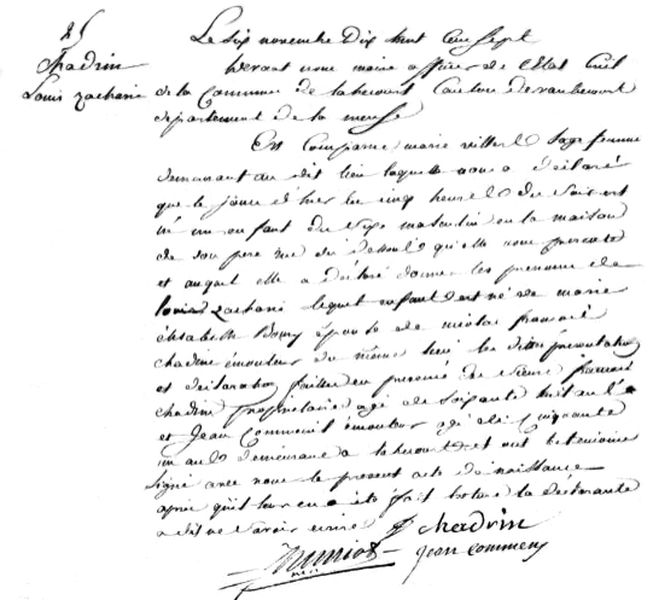 25
Chadrin
Louis zacharie
Le six novembre Dix huit cent sept
devant nous maire officier de l'Etat Civil
de la Commune de laheicourt Canton de vaubecourt
departement de la meuse
Est Comparue marie sage femme
demeurant au dit lieu laquelle nous a déclaré
que le jour d'hier les cinq heures du soir est
né un enfant du sexe masculin en la maison
de son pere rue du qu'elle nous presente
et auquel elle a déclaré donner les prenoms de
louis zacharie lequel enfant est né de marie
élisabeth épouse de nicolas francois
chadrin émouleur du même lieu les dites présentation
et déclaration faittes en presence de francois
chadrin propriétaire agé de soixante huit ans
et Jean Commenil émouleur agé de cinquante
un ans demeurant a laheicourt et ont les temoins
signé avec nous le present acte de naissance
après qu'il leur en a été fait lecture la déclarante
a dit ne savoir ecrire
f chadrin
jean commeny